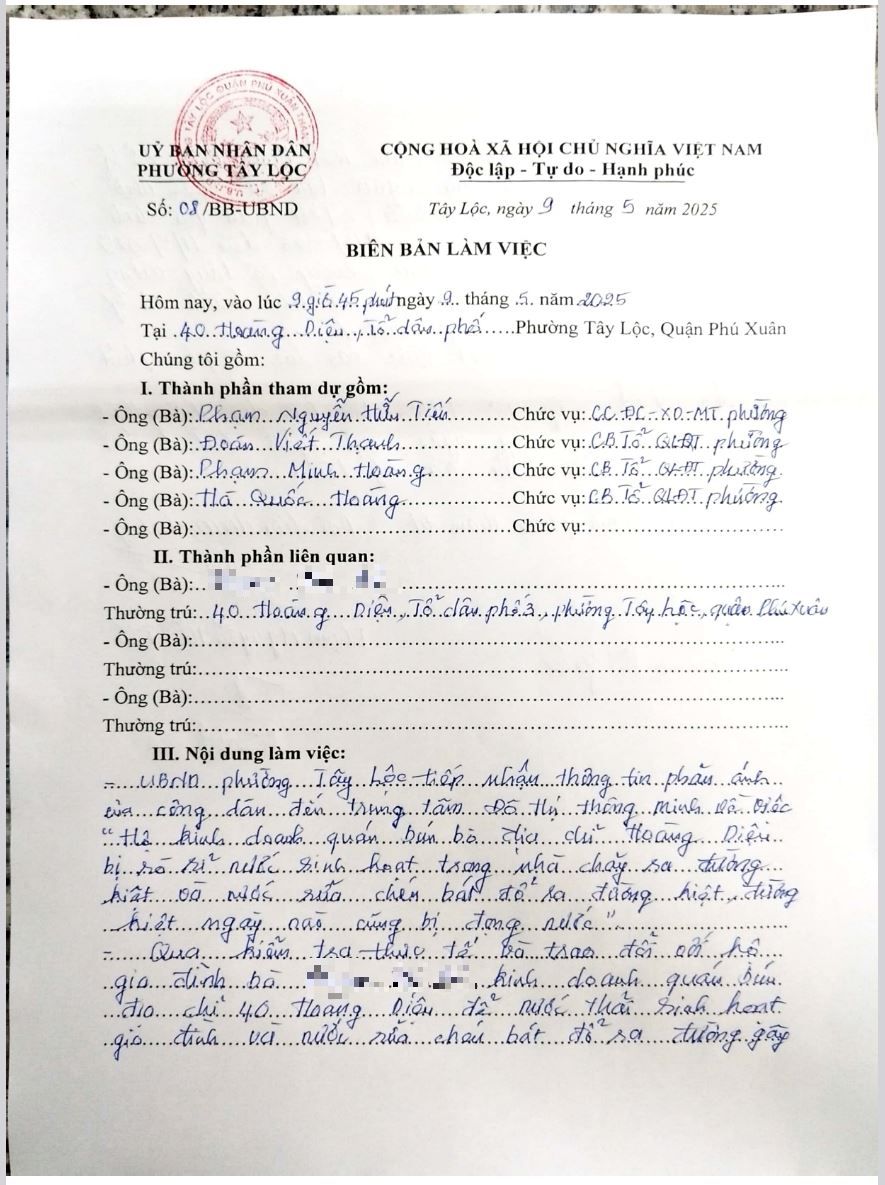 PHƯỜNG TÂY LỘC QUẬN PHÚ XUÂN
UỶ BAN NHÂN DÂN
PHƯỜNG TÂY LỘC
Số: 08 /BB-UBND
CỘNG HOÀ XÃ HỘI CHỦ NGHĨA VIỆT NAM
Độc lập - Tự do - Hạnh phúc
Tây Lộc, ngày 9 tháng 5 năm 2025
BIÊN BẢN LÀM VIỆC
Hôm nay, vào lúc 9 giờ 45 phút ngày 9 tháng 5 năm 2025
Tại 40 Hoàng Diệu, Tổ dân phố Phường Tây Lộc, Quận Phú Xuân
Chúng tôi gồm:
I. Thành phần tham dự gồm:
- Ông (Bà): Phạm Nguyễn Hữu Tiến Chức vụ: CC-ĐC-XD-MT phường
- Ông (Bà): Đoàn Viết Thanh Chức vụ: CB Tổ QLĐT phường
- Ông (Bà): Phạm Minh Hoàng Chức vụ: CB Tổ QLĐT phường
- Ông (Bà): Hà Quốc Hoàng Chức vụ: CB Tổ QLĐT phường
- Ông (Bà): Chức vụ:
II. Thành phần liên quan:
- Ông (Bà):
Thường trú: 40 Hoàng Diệu, Tổ dân phố 3, phường Tây Lộc, quận Phú Xuân
- Ông (Bà):
Thường trú:
- Ông (Bà):
Thường trú:
III. Nội dung làm việc:
- UBND phường Tây Lộc tiếp nhận thông tin phản ánh
của công dân đến trung tâm Đô thị thông minh về việc
"Hộ kinh doanh quán bún bò địa chỉ Hoàng Diệu
bị rò rỉ nước sinh hoạt trong nhà chảy ra đường
kiệt và nước rửa chén bát đổ ra đường kiệt, đường
kiệt ngày nào cũng bị đọng nước"
- Qua kiểm tra thực tế và trao đổi với hộ
gia đình bà , kinh doanh quán bún
địa chỉ 40 Hoàng Diệu để nước thải sinh hoạt
gia đình và nước rửa chén bát đổ ra đường gây